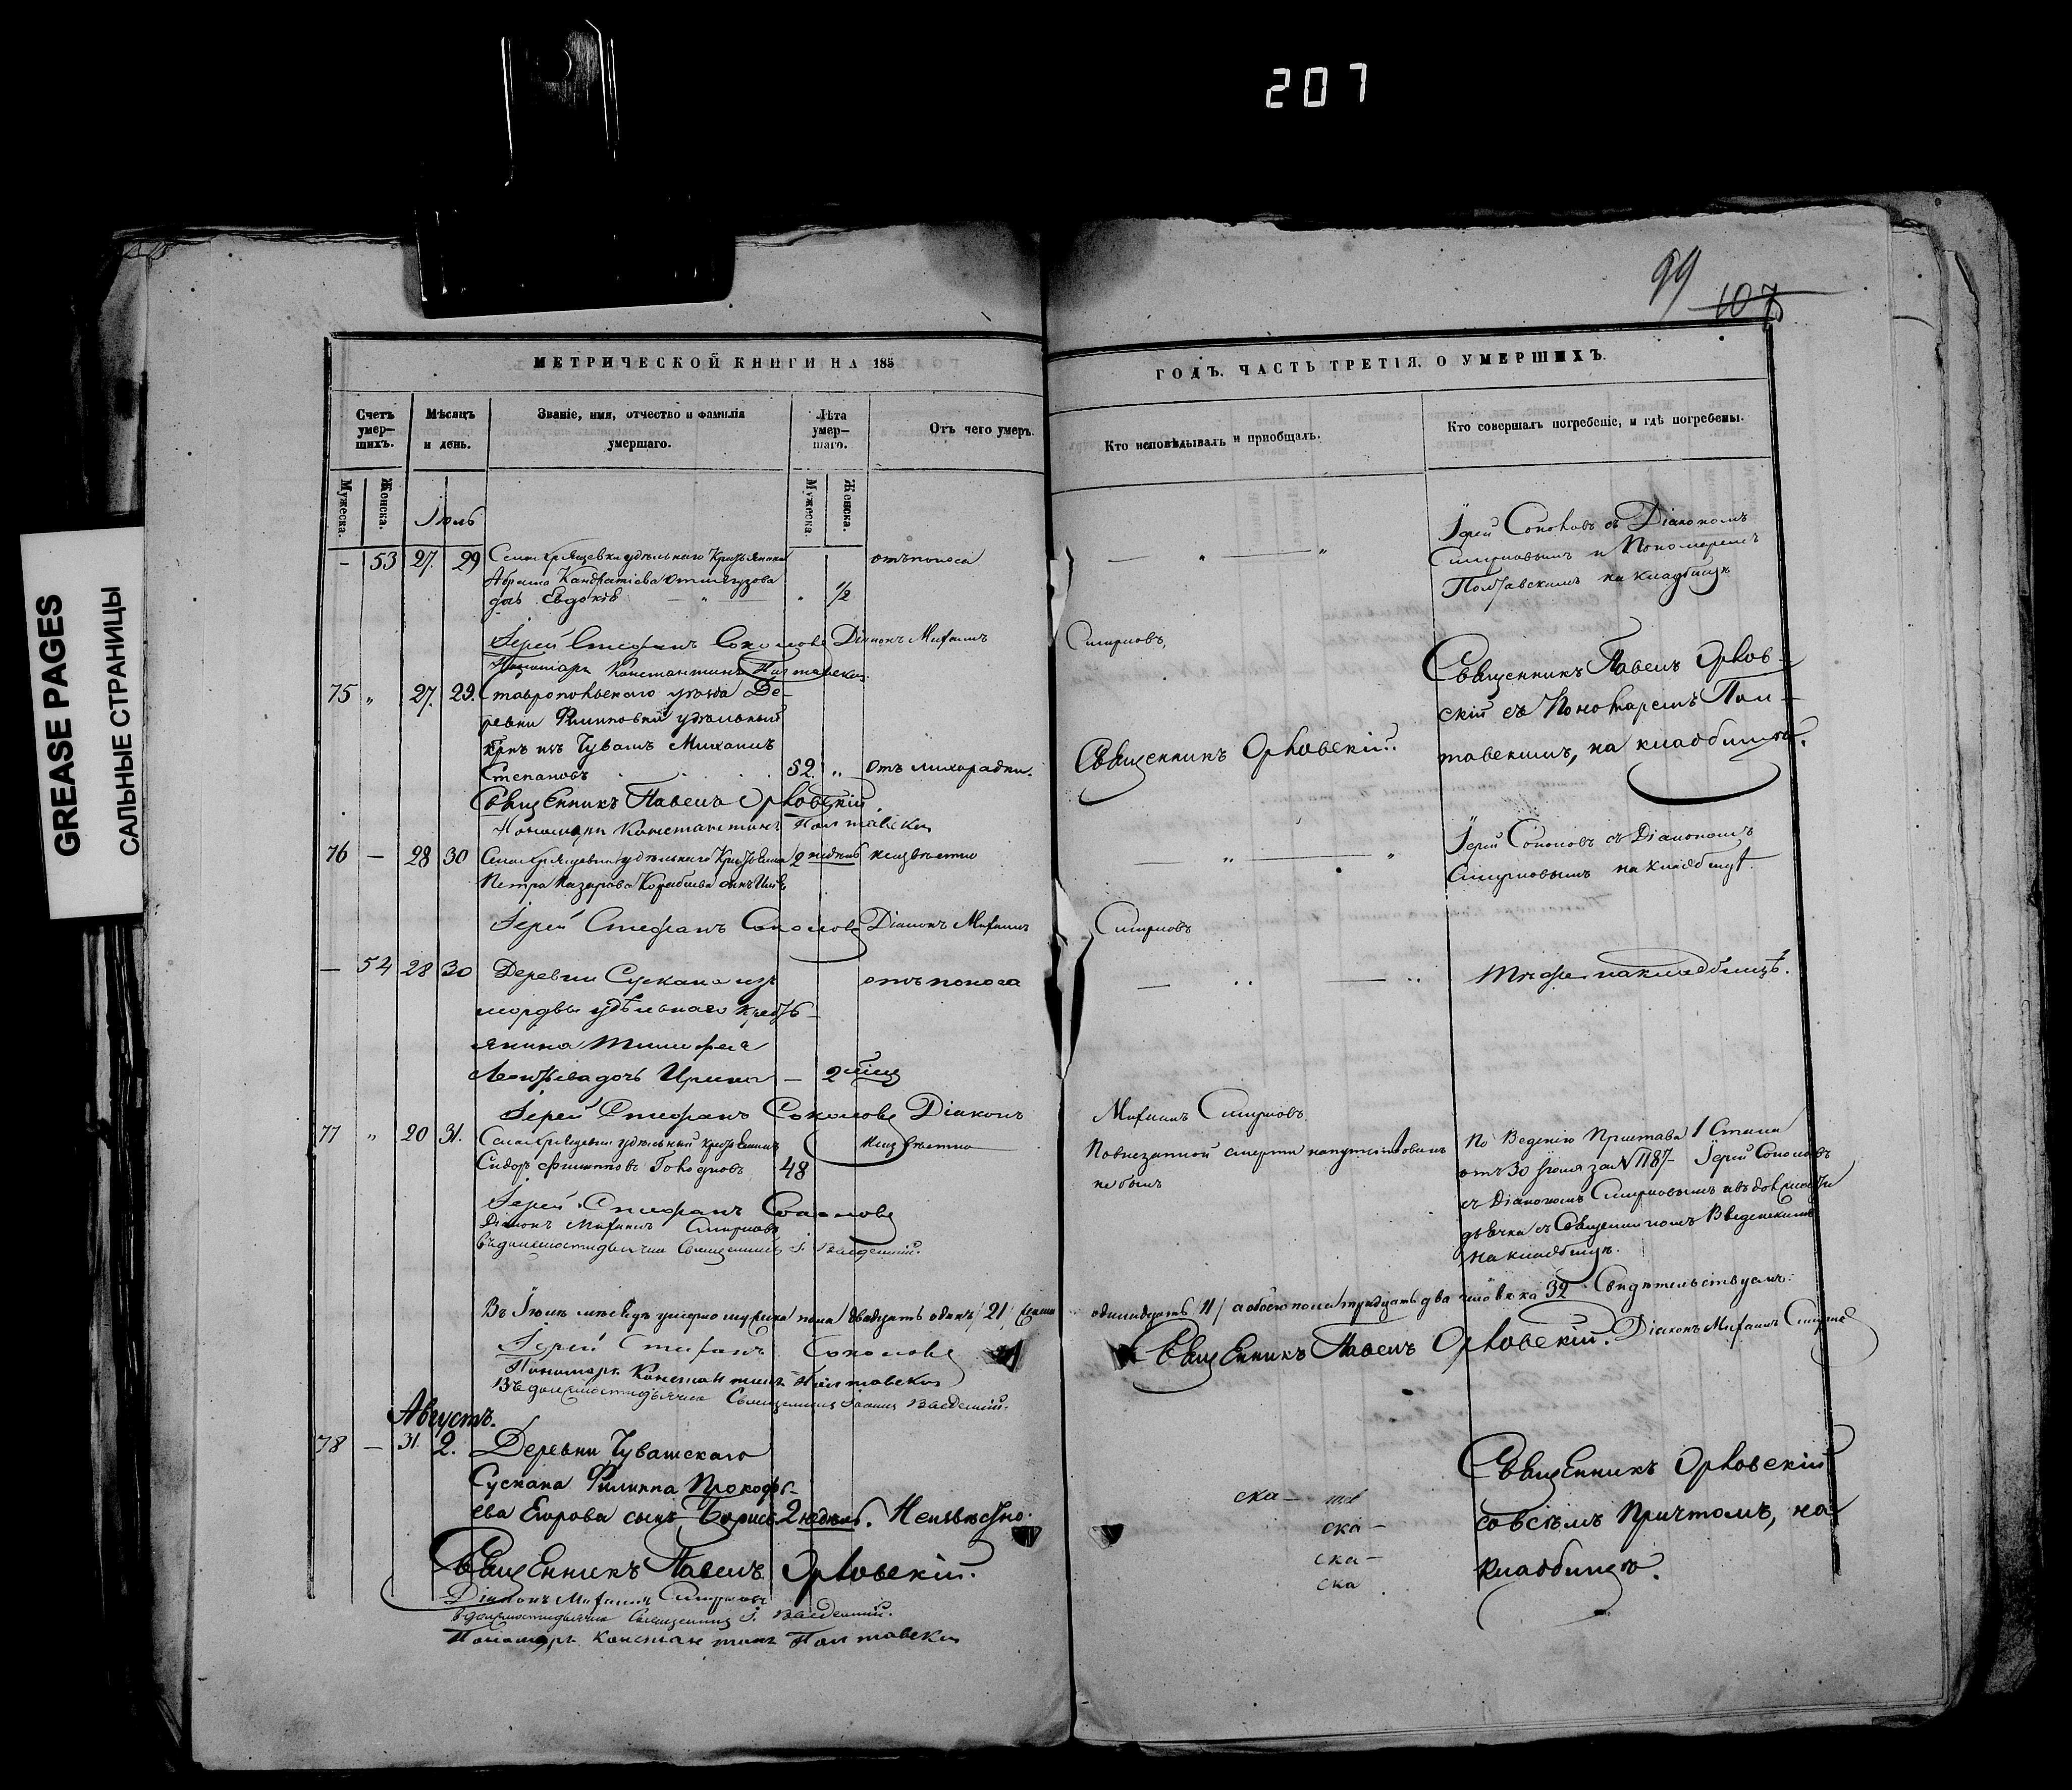 207
GREASE PAGES
САЛЬНЫЕ СТРАНИЦЫ
99
107
МЕТРИЧЕСКОЙ КНИГИ НА 185
ГОДЪ. ЧАСТЬ ТРЕТІЯ. О УМЕРШИХЪ.
Счетъ умер-
шихъ.
Мѣсяцъ
и день.
Званіе, имя, отчество и фамилія
умершаго.
Лѣта
умер-
шаго.
Отъ чего умеръ.
Кто исповѣдывалъ и пріобщалъ.
Кто совершалъ погребеніе, и гдѣ погребены.
Мужеска.
Женска.
Мужеска.
Женска.
Іюль
53 27. 29 удѣльнаго
Абрама
дочь Евдокія 1/2
отъ поноса
Іерей Соколовъ съ Діакономъ
Смирновымъ и Пономаремъ
Полтавскимъ на кладбищѣ
Іерей Стефанъ Соколовъ Діаконъ
Смирновъ,
Пономарь Константинъ Полтавскій
75 " 27. 29. Ставропольскаго уѣзда Де-
ревни Филипповки удѣльный
изъ Чувашъ Михаилъ
Степановъ 52. " Отъ лихорадки.
Священникъ Орловскій.
Священникъ Павелъ Орлов-
скій съ Пономаремъ Пол-
тавскимъ, на кладбищѣ.
Священникъ Павелъ Орловскій
Пономарь Константинъ Полтавскій
76 — 28 30 удѣльнаго 2 недѣль неизвѣстно
Петра Назарова сынъ
Іерей Соколовъ съ Діакономъ
Смирновымъ на кладбищѣ
Іерей Стефанъ Соколовъ Діаконъ
Смирновъ
— 54 28 30 Деревни Сускана изъ
мордвы удѣльнаго кресть-
янина Тимофея
дочь Ирина — 2
отъ поноса
на кладбищѣ.
Іерей Стефанъ Соколовъ Діаконъ
Смирновъ.
77 " 20 31. удѣльный
Сидоръ Филипповъ 48
неизвѣстно
По внезапной смерти напутствованъ
не былъ
По Веденію Пристава 1 Стана
отъ 30 Іюля за № 1187 Іерей Соколовъ
съ Діакономъ Смирновымъ и въ должности
дьячка съ Священникомъ Введенскимъ
на кладбищѣ.
Іерей Стефанъ Соколовъ
Діаконъ Смирновъ
Въ должности дьячка Священникъ І. Введенскій.
Въ Іюлѣ мѣсяцѣ умерло мужска пола двадцать одинъ /21/
одиннадцать /11/ а обоего пола тридцать два человѣка 32. Свидѣтельствуемъ:
Іерей Стефанъ Соколовъ
Священникъ Павелъ Орловскій. Діаконъ
Пономарь Константинъ Полтавскій
Въ должности дьячка Священникъ Іоаннъ Введенскій.
Августъ.
78 — 31. 2. Деревни Чувашскаго
Сускана Филиппа Прокофь-
ева Егорова сынъ Борисъ. 2 недѣль. Неизвѣстно.
ска —
ска —
ска —
ска
Священникъ Орловскій
со всѣмъ Причтомъ, на
кладбищѣ.
Священникъ Павелъ Орловскій.
Діаконъ Смирновъ
Въ должности дьячка Священникъ І. Введенскій.
Пономарь Константинъ Полтавскій